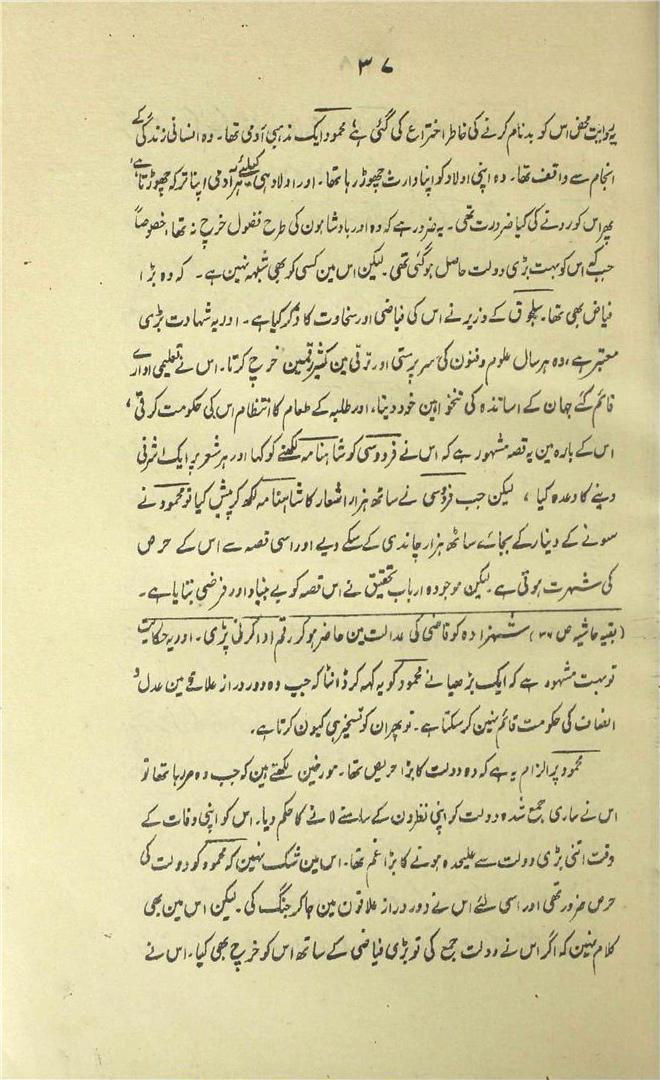 ۳۷
یہ روایت محض اس کو بدنام کرنے کی خاطر اختراع کی گئی ہے محمود ایک مذہبی آدمی تھا۔ وہ انسانی زندگی کے
انجام سے واقف تھا۔ وہ اپنی اولاد کو اپنا وارث چھوڑ رہا تھا۔ اور اولاد ہی کیلئے ہر آدمی اپنا ترکہ چھوڑتا ہے،
پھر اس کو رونے کی کیا ضرورت تھی۔ یہ ضرور ہے کہ وہ اور بادشاہون کی طرح فضول خرچ نہ تھا، خصوصاً
جبکہ اس کو بہت بڑی دولت حاصل ہو گئی تھی۔ لیکن اس مین کسی کو بھی شبہہ نہین ہے۔ کہ وہ بڑا
فیاض بھی تھا۔ سلجوق کے وزیر نے اس کی فیاضی اور سخاوت کا ذکر کیا ہے۔ اور یہ شہادت بڑی
معتبر ہے، وہ ہر سال علوم و فنون کی سرپرستی اور ترقی مین کثیر رقمین خرچ کرتا۔ اس نے تعلیمی ادارے
قائم کئے جہان کے اساتذہ کی تنخواہین خود دیتا، اور طلبہ کے طعام کا انتظام اس کی حکومت کرتی،
اس کے بارہ مین یہ قصہ مشہور ہے کہ اس نے فردوسی کو شاہنامہ لکھنے کو کہا اور ہر شعر پر ایک اشرفی
دینے کا وعدہ کیا، لیکن جب فردوسی نے ساٹھ ہزار اشعار کا شاہنامہ لکھ کر پیش کیا تو محمود نے
سونے کے دینار کے بجائے ساٹھ ہزار چاندی کے سکے دیے اور اسی قصہ سے اس کے حرص
کی شہرت ہوتی ہے۔ لیکن موجودہ ارباب تحقیق نے اس قصہ کو بے بنیاد اور فرضی بتایا ہے۔
(بقیہ حاشیہ ص ۳۶) شہزادہ کو قاضی کی عدالت مین حاضر ہو کر رقم ادا کرنی پڑی۔ اور یہ حکایت
تو بہت مشہور ہے کہ ایک بڑھیا نے محمود کو یہ کہہ کر ڈانٹا کہ جب وہ دور دراز علاقے مین عدل و
انصاف کی حکومت قائم نہین کر سکتا ہے۔ تو پھر ان کو تسخیر ہی کیون کرتا ہے۔
محمود پر الزام یہ ہے کہ وہ دولت کا بڑا حریص تھا۔ مورخین لکھتے ہین کہ جب وہ مر رہا تھا تو
اس نے ساری جمع شدہ دولت کو اپنی نظرون کے سامنے لانے کا حکم دیا۔ اس کو اپنی وفات کے
وقت اتنی بڑی دولت سے علیحدہ ہونے کا بڑا غم تھا۔ اس مین شک نہین کہ محمود کو دولت کی
حرص ضرور تھی اور اسی لئے اس نے دور دراز علاقون مین جا کر جنگ کی۔ لیکن اس مین بھی
کلام نہین کہ اگر اس نے دولت جمع کی تو بڑی فیاضی کے ساتھ اس کو خرچ بھی کیا۔ اس نے